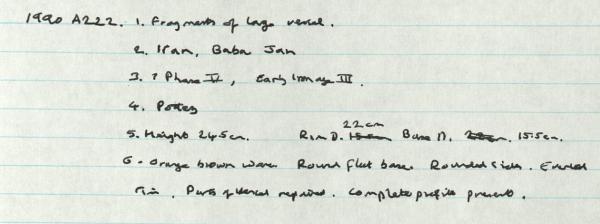 1990 A222. 1. Fragments of large vessel.
2. Iran, Baba Jan
3. ? Phase IV, Early Iron age III.
4. Pottery
22cm
5. Height 24.5cm. Rim D. 15.5cm Base D. 22cm. 15.5cm.
6. Orange brown ware. Round flat base. Rounded sides. Everted
rim. Parts of vessel repaired. Complete profile present.